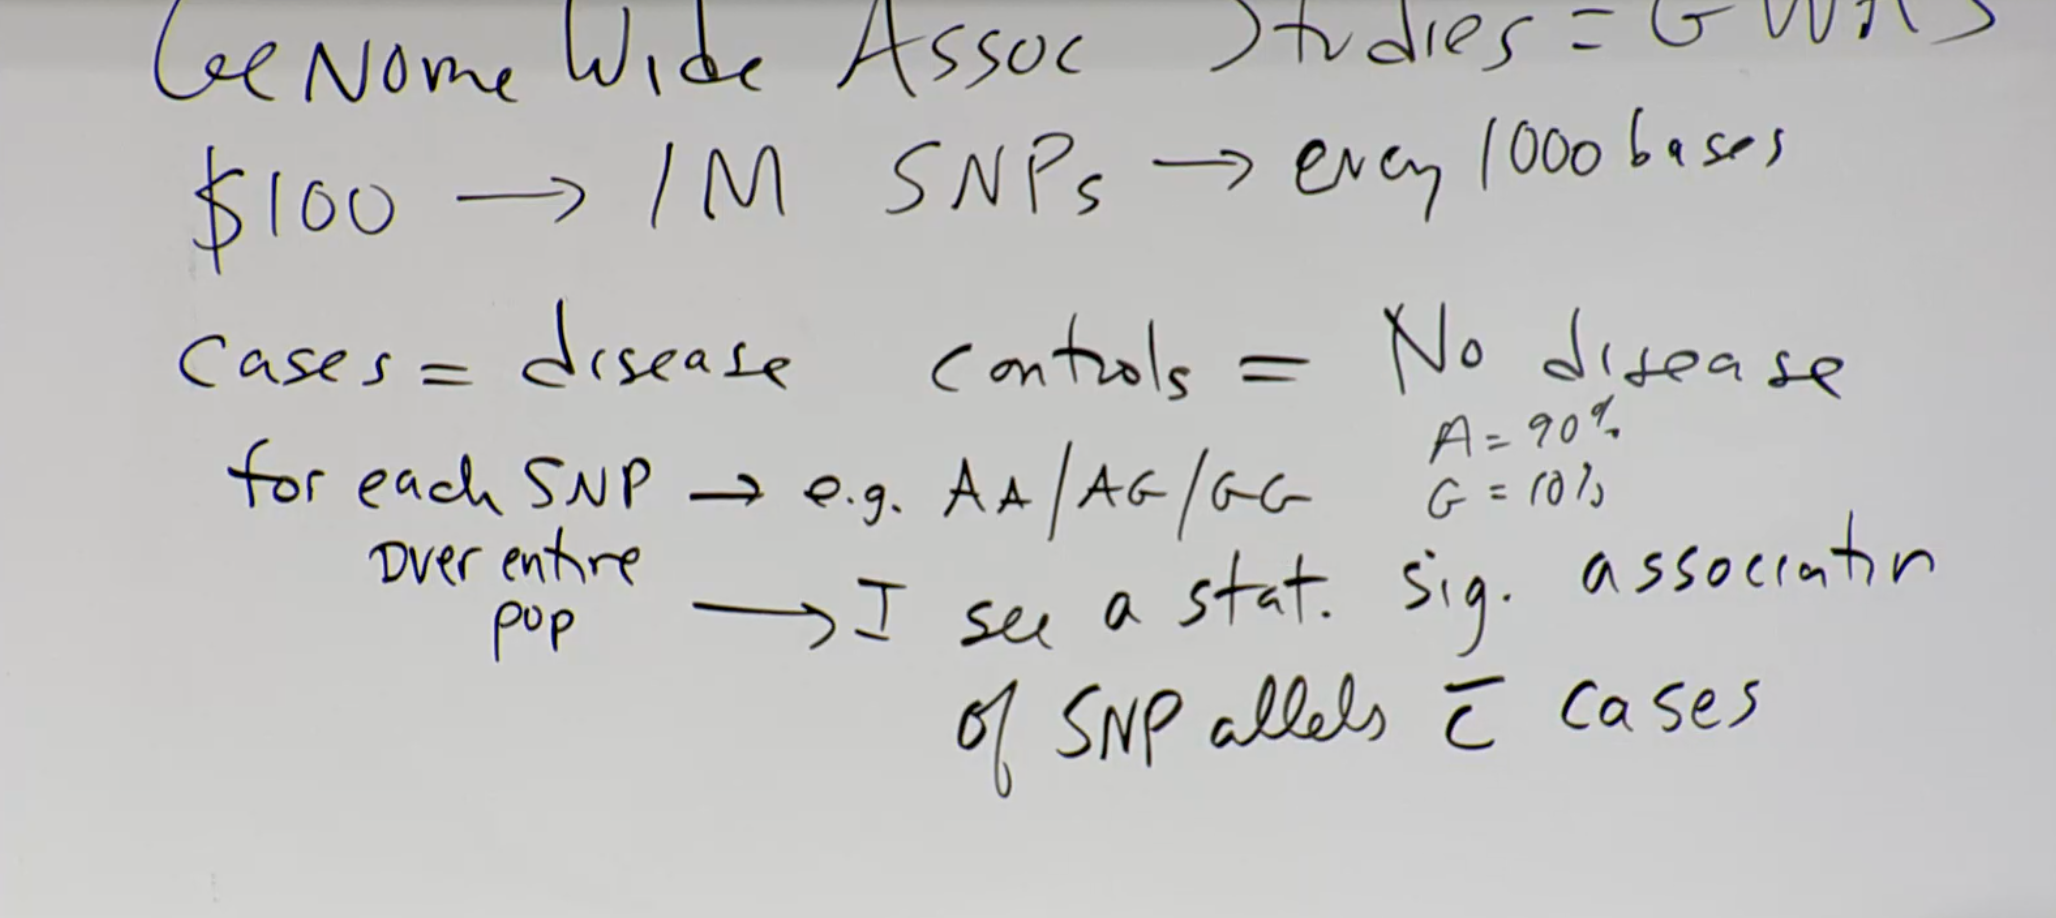 GeNome Wide Assoc Studies = GWAS
$100 → 1M SNPs → every 1000 bases
cases = disease controls = No disease
A = 90%
for each SNP → e.g. AA/AG/GG
G = 10%
Over entire
pop
→ I see a stat. sig. association
of SNP allels c̄ cases